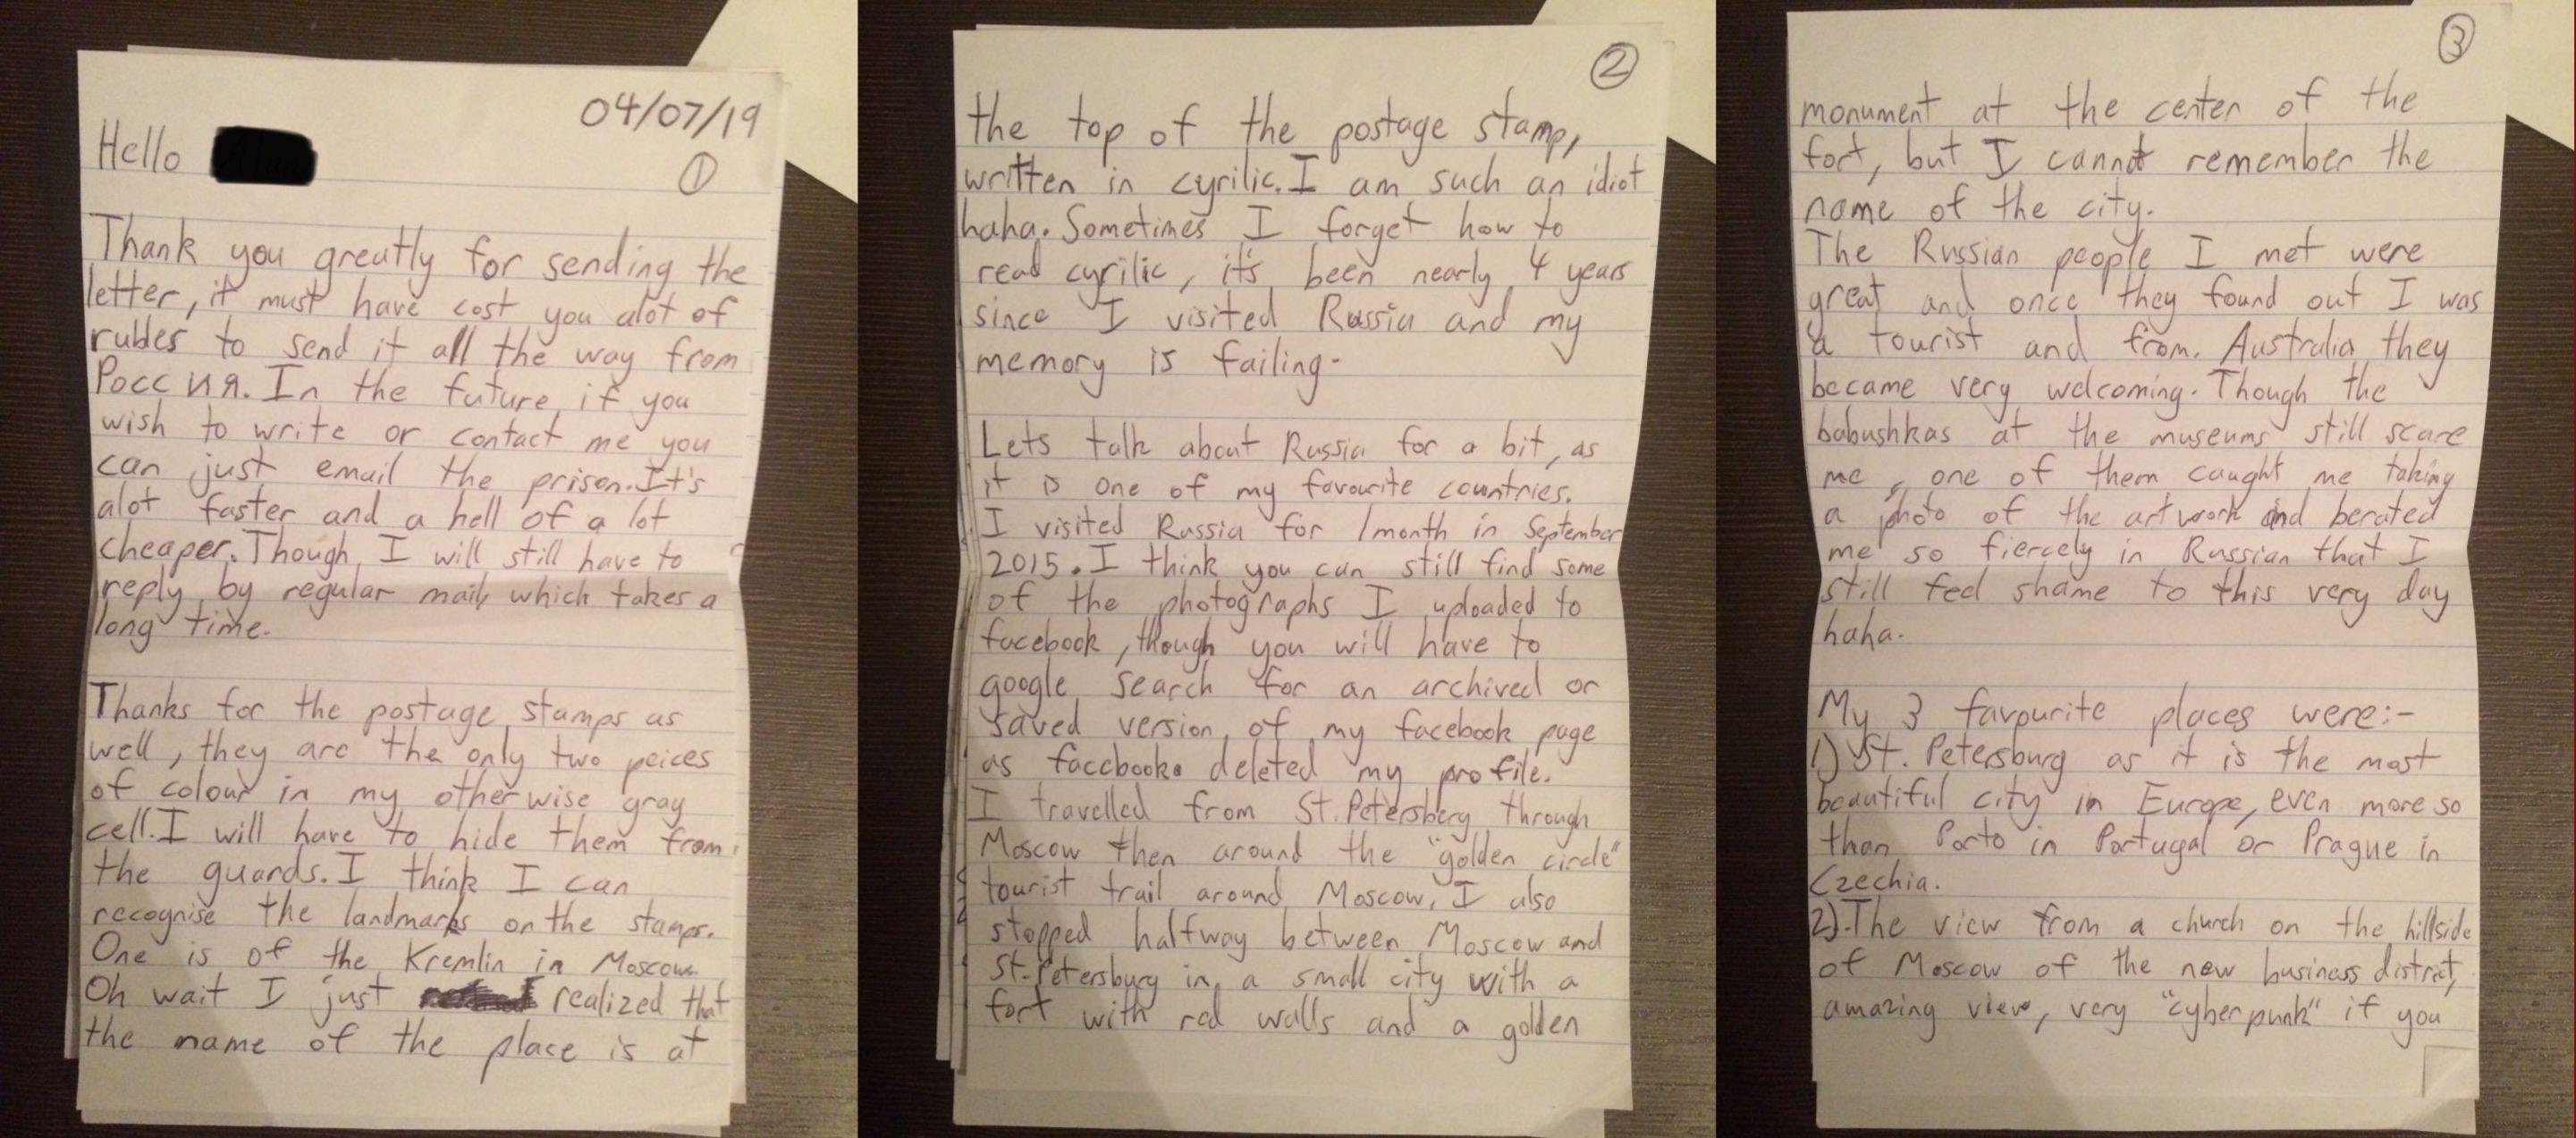 04/07/19
Hello
①
Thank you greatly for sending the
letter, it must have cost you alot of
rubles to send it all the way from
Росс ия. In the future, if you
wish to write or contact me you
can just email the prison. It's
alot faster and a hell of a lot
cheaper. Though, I will still have to
reply by regular mail, which takes a
long time.
Thanks for the postage stamps as
well, they are the only two peices
of colour in my otherwise gray
cell. I will have to hide them from
the guards. I think I can
recognise the landmarks on the stamps.
One is of the Kremlin in Moscow.
Oh wait I just realized that
the name of the place is at
②
the top of the postage stamp,
written in cyrilic. I am such an idiot
haha. Sometimes I forget how to
read cyrilic, it's been nearly 4 years
since I visited Russia and my
memory is failing.
Lets talk about Russia for a bit, as
it is one of my favourite countries.
I visited Russia for 1 month in September
2015. I think you can still find some
of the photographs I uploaded to
facebook, though you will have to
google search for an archived or
saved version of my facebook page
as facebook deleted my profile.
I travelled from St. Petersberg through
Moscow then around the "golden circle"
tourist trail around Moscow. I also
stopped halfway between Moscow and
St. Petersburg in a small city with a
fort with red walls and a golden
③
monument at the center of the
fort, but I cannot remember the
name of the city.
The Russian people I met were
great and once they found out I was
a tourist and from Australia they
became very welcoming. Though the
babushkas at the museums still scare
me, one of them caught me taking
a photo of the artwork and berated
me so fiercely in Russian that I
still feel shame to this very day
haha.
My 3 favourite places were:-
1) St. Petersburg as it is the most
beautiful city in Europe, even more so
than Porto in Portugal or Prague in
Czechia.
2). The view from a church on the hillside
of Moscow of the new business district,
amazing view, very "cyberpunk" if you